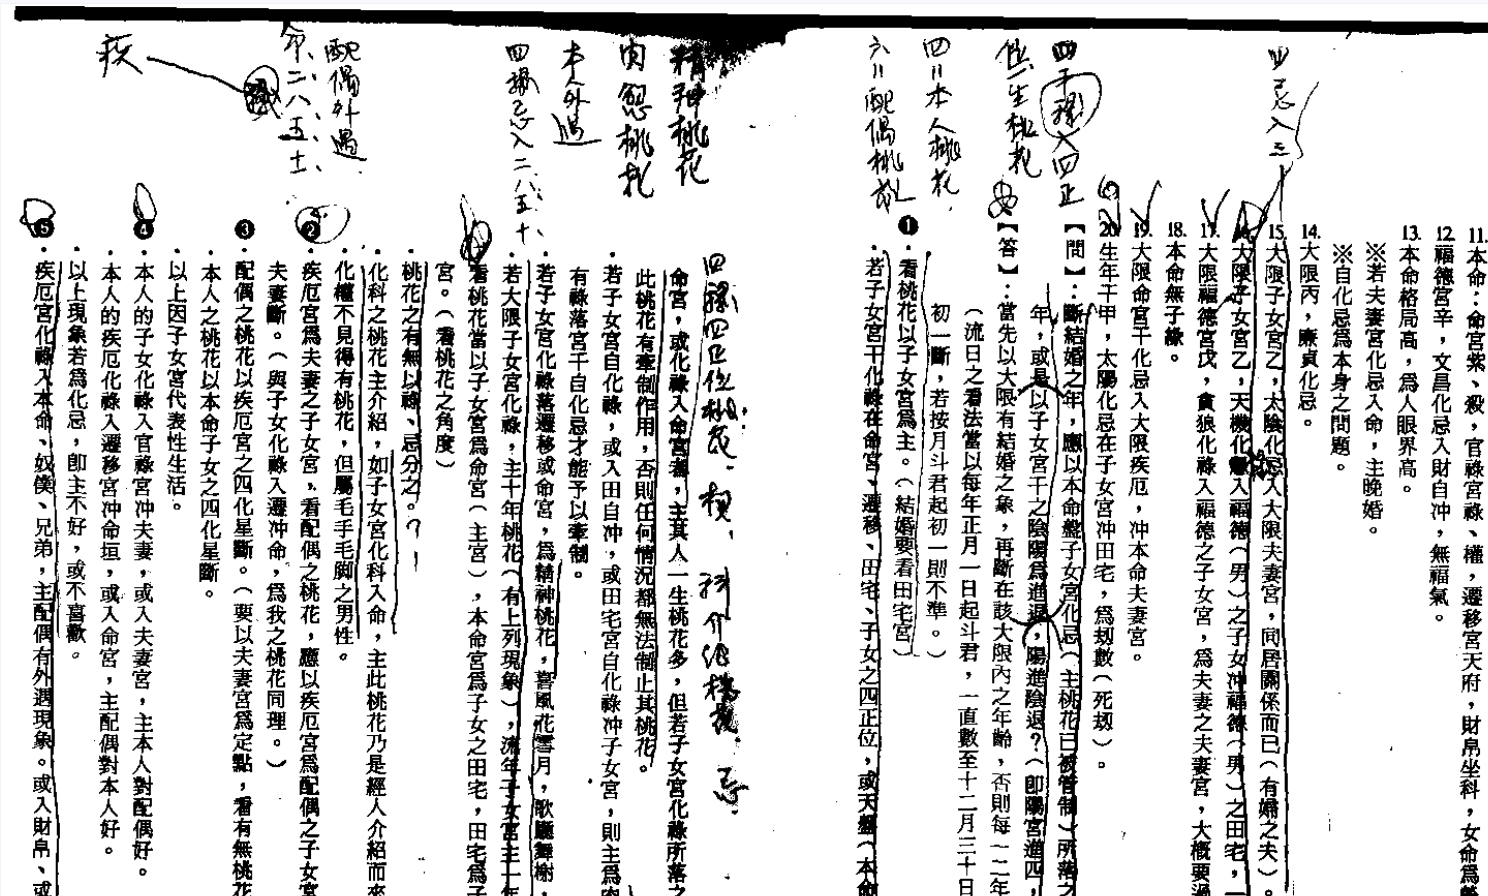 四忌入三
四干祿入四正
位一生桃花
四=本人桃花
六=配偶桃花
精神桃花
肉慾桃花
本人外遇
四祿忌入二、八、五、十
配偶外遇
命、二、八、五、十
疾
11.本命:命宮紫、殺,官祿宮祿、權,遷移宮天府,財帛坐科,女命爲
12.福德宮辛,文昌化忌入財自冲,無福氣。
13.本命格局高,爲人眼界高。
※若夫妻宮化忌入命,主晚婚。
※自化忌爲本身之問題。
14.大限丙,廉貞化忌。
15.大限子女宮乙,太陰化忌入大限夫妻宮,同居關係而已(有婦之夫)。
16.大限子女宮乙,天機化祿入福德(男)之子女冲福德(男)之田宅,
17.大限福德宮戊,貪狼化祿入福德之子女宮,爲夫妻之夫妻宮,大槪要過
18.本命無子緣。
19.大限命宮干化忌入大限疾厄,冲本命夫妻宮。
20.生年干甲,太陽化忌在子女宮冲田宅,爲劫數(死劫)。
【問】:斷結婚之年,應以本命盤子女宮化忌(主桃花已被管制)所落之
年,或是以子女宮干之陰陽爲進退,陽進陰退?(卽陽宮進四,
【答】:當先以大限有結婚之象,再斷在該大限內之年齡,否則每一二年
(流日之看法當以每年正月一日起斗君,一直數至十二月三十日
初一斷,若按月斗君起初一則不準。)
❶.看桃花以子女宮爲主。(結婚要看田宅宮)
.若子女宮干化祿在命宮、遷移、田宅、子女之四正位,或天盤(本命
四祿四正位桃花.權.科介紹桃花.忌
命宮,或化祿入命宮者,主其人一生桃花多,但若子女宮化祿所落之
此桃花有牽制作用,否則任何情况都無法制止其桃花。
.若子女宮自化祿,或入田自冲,或田宅宮自化祿冲子女宮,則主爲肉
有祿落宮干自化忌才能予以牽制。
.若子女宮化祿落遷移或命宮,爲精神桃花,喜風花雪月,歌廳舞榭,
.若大限子女宮化祿,主十年桃花(有上列現象),流年子女宮主一年
.看桃花當以子女宮爲命宮(主宮),本命宮爲子女之田宅,田宅爲子
宮。(看桃花之角度)
桃花之有無以祿、忌分之。?
.化科之桃花主介紹,如子女宮化科入命,主此桃花乃是經人介紹而來
化權不見得有桃花,但屬毛手毛脚之男性。
❷.疾厄宮爲夫妻之子女宮,看配偶之桃花,應以疾厄宮爲配偶之子女宮
夫妻斷。(與子女化祿入遷冲命,爲我之桃花同理。)
❸.配偶之桃花以疾厄宮之四化星斷。(要以夫妻宮爲定點,看有無桃花
.本人之桃花以本命子女之四化星斷。
以上因子女宮代表性生活。
❹.本人的子女化祿入官祿宮冲夫妻,或入夫妻宮,主本人對配偶好。
.本人的疾厄化祿入遷移宮冲命垣,或入命宮,主配偶對本人好。
.以上現象若爲化忌,卽主不好,或不喜歡。
❺.疾厄宮化祿入本命、奴僕、兄弟,主配偶有外遇現象。或入財帛、或